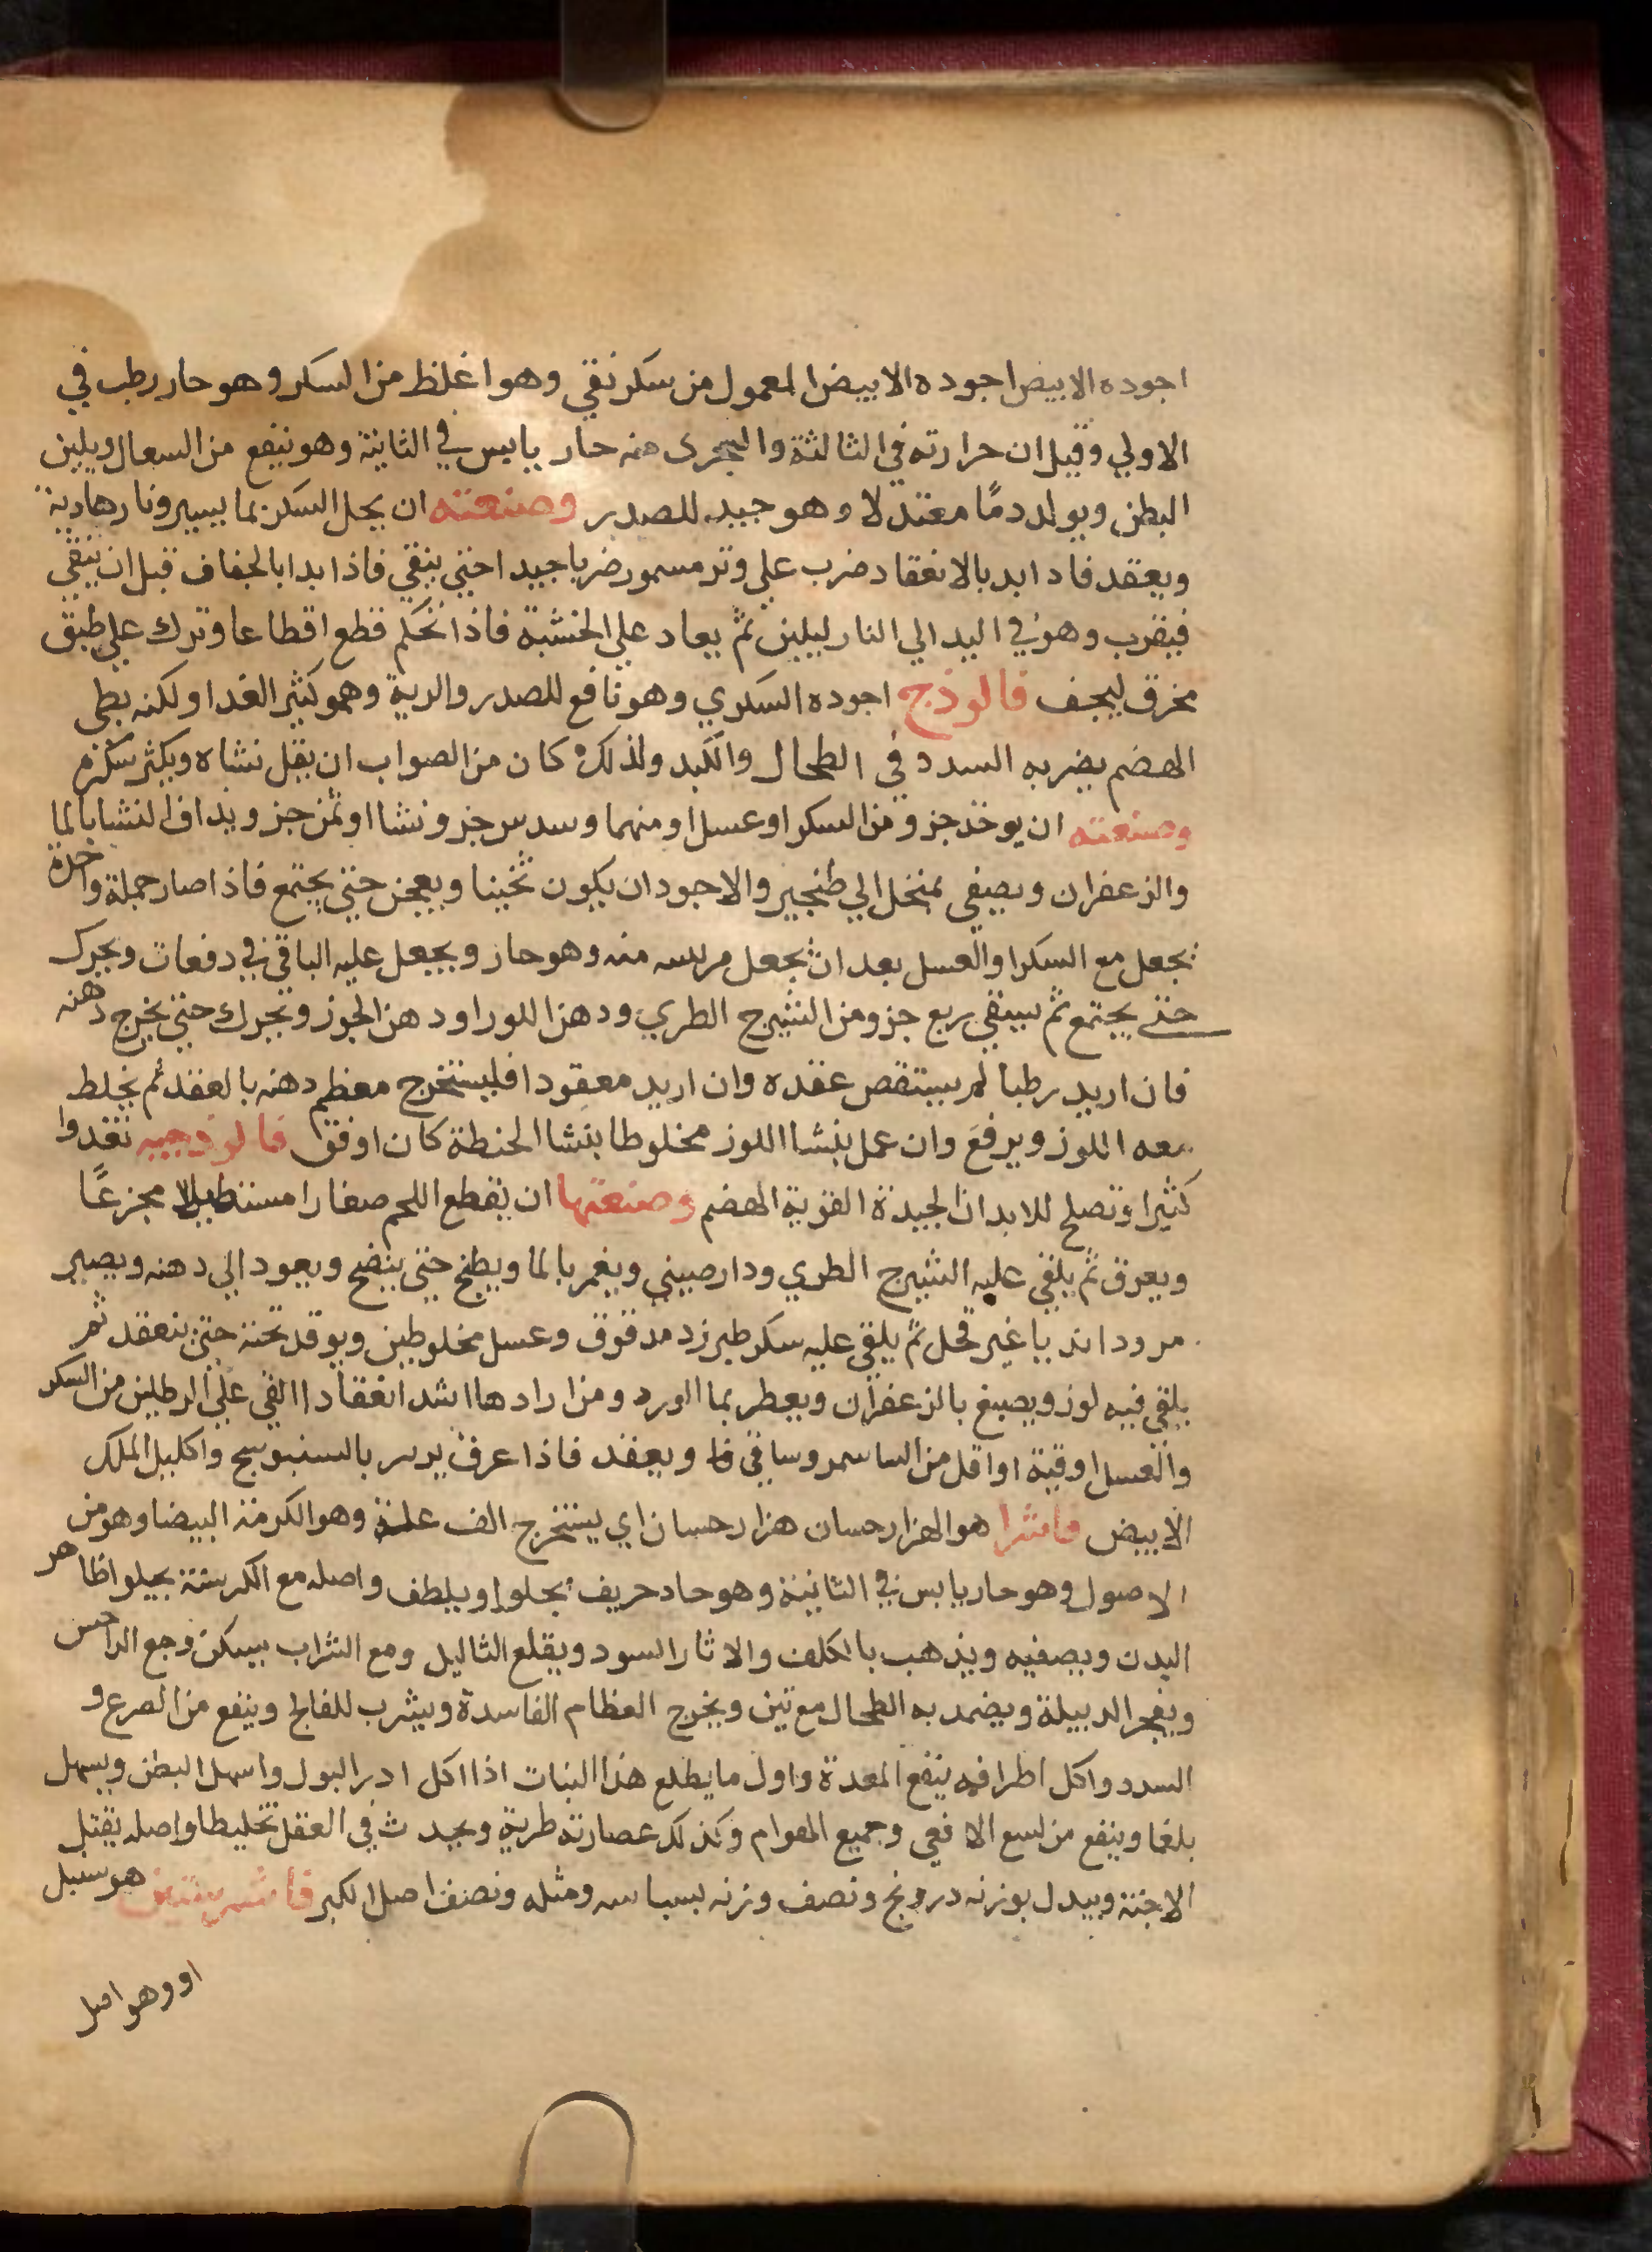 اجوده الابيض اجوده الابيض المعمول من سكر نقي وهو اغلظ من السكر وهو حار رطب في
الاولي وقيل ان حرارته في الثالثة والسجرى منه حار يابس في الثانية وهو ينفع من السعال ويلين
البطن ويولد دمًا معتدلا وهو جيد للصدر وصنعته ان يحل السكر بما يسير ونار هادية
ويعقد فاد ابد بالانعقاد ضرب علي وتد مسمور ضربا جيدا حتي ينقي فاذا بدا بالجفاف قبل ان ينقي
فيقرب وهو في اليد الي النار ليلين ثم يعاد علي الخشبة فاذا تحكم قطع اقطاعا وترك علي طبق
مخرق ليجف فالوذج اجوده السكري وهو نافع للصدر والرية وهو كثير الغدا ولكنه بطي
الهضم يضر به السدد في الطحال والكبد ولذلك كان من الصواب ان يقل نشاه ويكثر سكره
وصنعته ان يوخذ جزو من السكر او عسل او منهما وسدس جزو نشا او ثمن جز ويداف النشا بالما
والزعفران ويصفي بمنخل الي طنجير والاجود ان يكون ثخينا ويعجن حتي يجتمع فاذا صار جملة واحدة
يجعل مع السكر او العسل بعد ان يجعل مريسه منه وهو حار ويجعل عليه الباقي في دفعات ويحرك
حتي يجتمع ثم يسقي ربع جزو من الشيرج الطري ودهن اللوز او دهن الجوز وتحرك حتي يخرج دهنه
فان اريد رطبا لم يستقص عقده وان اريد معقودا فليستخرج معظم دهنه بالعقد ثم يخلط
معه اللوز ويرفع وان عمل بنشا اللوز مخلوطا بنشا الحنطة كان اوفق فالوذجيه تغدوا
كثيرا وتصلح للابدان الجيدة القوية الهضم وصنعتها ان يقطع اللحم صغارا مستطيلا مجزعًا
ويعرق ثم يلقي عليه الشيرج الطري ودارصيني ويغمر بالما ويطبخ حتي ينضج ويعود الي دهنه ويصير
مروداند يا غير قحل ثم يلقي عليه سكر طبرزد مدقوق وعسل مخلوطين ويوقد تحته حتي ينعقد ثم
يلقي فيه لوز ويصبغ بالزعفران ويعطر بما الورد ومن ارادها اشد انعقادا القي علي الرطلين من السكر
والعسل اوقية او اقل من النشا ويعقد فاذا عرف بالسنبوسج واكليل الملك
الابيض فاشرا هو الهزارجسان هزارجسان اي يستخرج الف علة وهو الكرمة البيضا وهو من
الاصول وهو حار يابس في الثانية وهو حاد حريف يجلوا ويلطف واصله مع الكرسنة يجلوا ظاهر
البدن ويصفيه ويذهب بالكلف والاثار السود ويقلع الثاليل ومع الشراب يسكن وجع الداحس
ويفجر الدبيلة ويضمد به الطحال مع تين ويخرج العظام الفاسدة ويشرب للفالج وينفع من الصرع و
السدد واكل اطرافه ينفع المعدة واول ما يطلع هذا النبات اذا اكل ادر البول واسهل البطن ويسهل
بلغما وينفع من لسع الافعي وجميع الهوام وكذلك عصارته طرية ويحدث في العقل تخليطا واصله يقتل
الاجنة ويبدل بوزنه درونج ونصف وزنه بسباسه ومثله ونصف اصل الكبر فاشرشتين هو ستبل